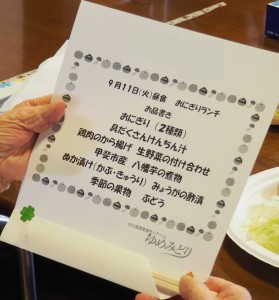 9月11日(火)昼食　おにぎりランチ
お品書き
おにぎり（2種類）
具だくさんけんちん汁
鶏肉のから揚げ　生野菜の付け合わせ
甲斐市産　八幡芋の煮物
ぬか漬け(かぶ・きゅうり)　みょうがの酢漬
季節の果物　ぶどう